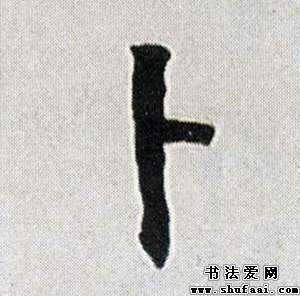 卜
书法爱网
www.shufaai.com